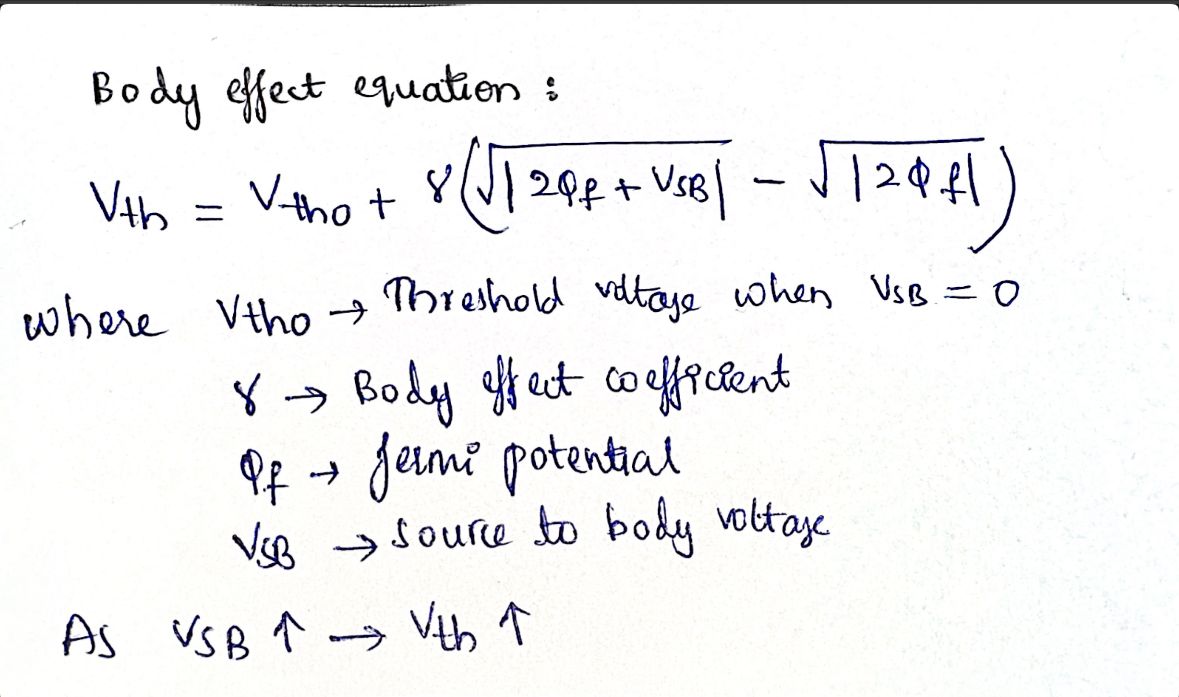 Body effect equation :
Vth = Vtho + γ(√|2φf + VSB| - √|2φf|)
where Vtho → Threshold voltage when VSB = 0
γ → Body effect coefficient
φf → fermi potential
VSB → source to body voltage
As VSB ↑ → Vth ↑